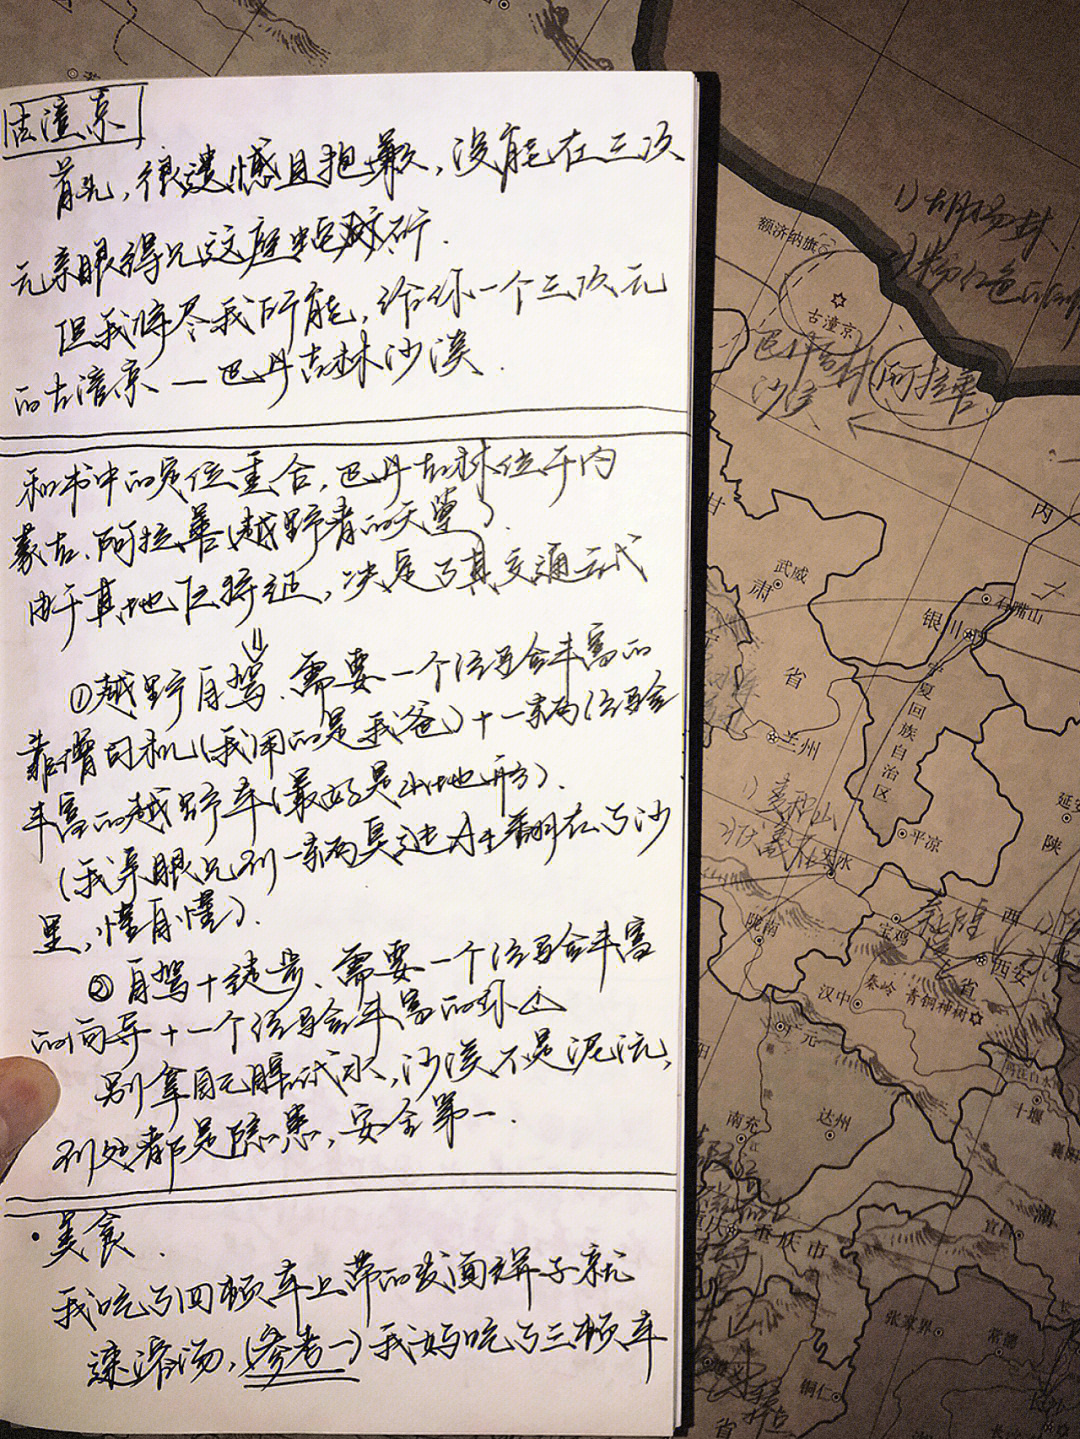 古潼京
首先，很遗憾且抱歉，没能在三次
元亲眼得见这座
但我将尽我所能，给你一个三次元
的古潼京一巴丹吉林沙漠．
和书中的定位重合，巴丹吉林位于内
蒙古、阿拉善（越野者的天堂）．
由于其地区特征，决定了其交通方式
①越野自驾．需要一个经验丰富的
靠谱司机（我用的是我爸）＋一辆经验
丰富的越野车（最好是山地形）．
（我亲眼见到一辆翻在了沙
里，懂自懂）．
②自驾＋徒步．需要一个经验丰富
的向导＋一个经验丰富的
别拿自己脚试水，沙漠不是泥流，
到处都是隐患，安全第一．
·美食．
我吃了四顿车上带的发面饼子就
速溶汤，（参考一）我妈吃了三顿车
额济纳旗
古潼京
巴丹吉林
沙漠
阿拉善
内
甘
武威
肃
石嘴山
银川
省
宁夏回族自治区
兰州
1）麦积山
延安
平凉
陕
天水
陇南
宝鸡
秦陵
西
西安
省
秦岭 青铜神树
汉中
广元
十堰
南充
达州
重庆
重庆市
宜昌
湖
张家界
常德
铜仁
省
长沙